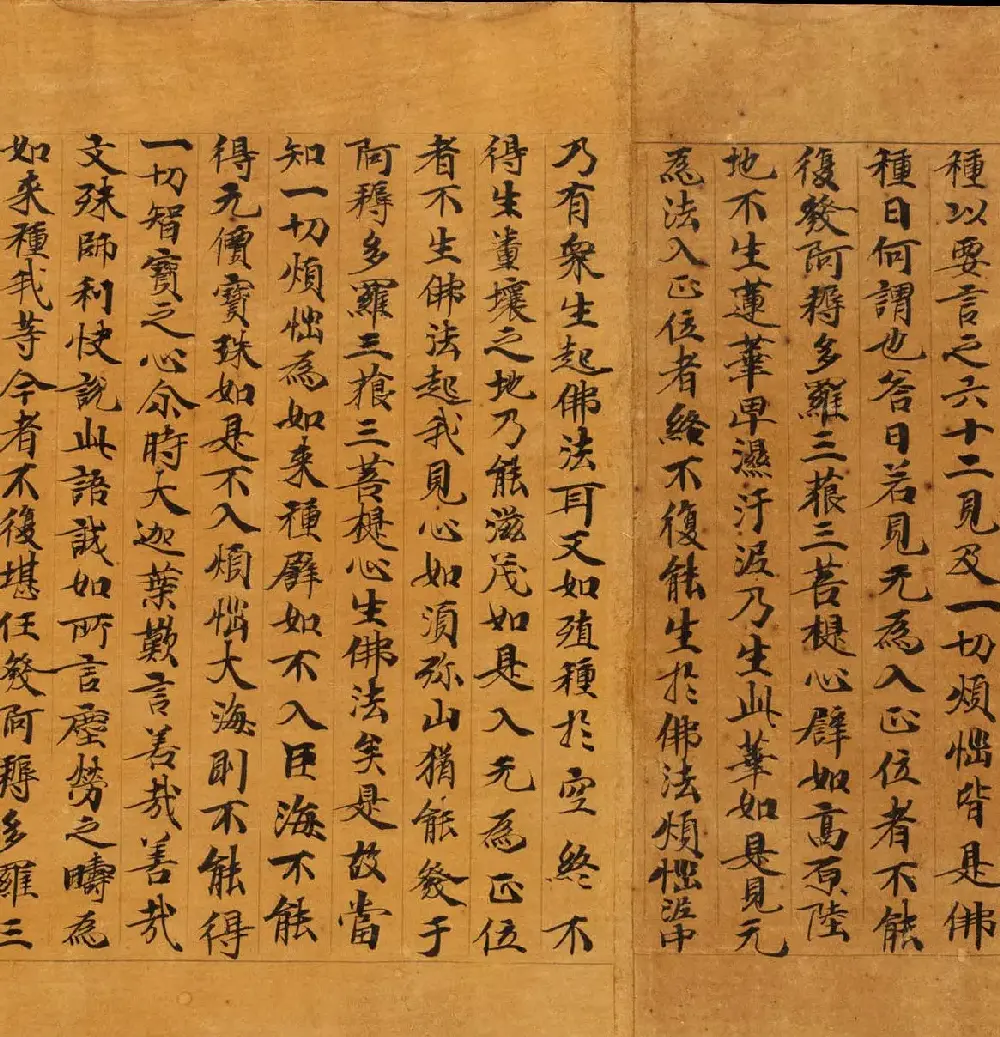 種以要言之六十二見及一切煩惱皆是佛
種曰何謂也荅曰若見无為入正位者不能
復發阿耨多羅三藐三菩提心譬如高原陸
地不生蓮華卑濕汙泥乃生此華如是見无
為法入正位者終不復能生於佛法煩惱泥中
乃有衆生起佛法耳又如殖種於空終不
得生糞壤之地乃能滋茂如是入无為正位
者不生佛法起我見心如須弥山猶能發于
阿耨多羅三藐三菩提心生佛法矣是故當
知一切煩惱為如来種譬如不入巨海不能
得无價寶珠如是不入煩惱大海則不能得
一切智寶之心尒時大迦葉歎言善哉善哉
文殊師利快說此語誠如所言塵勞之疇為
如来種我等今者不復堪任發阿耨多羅三